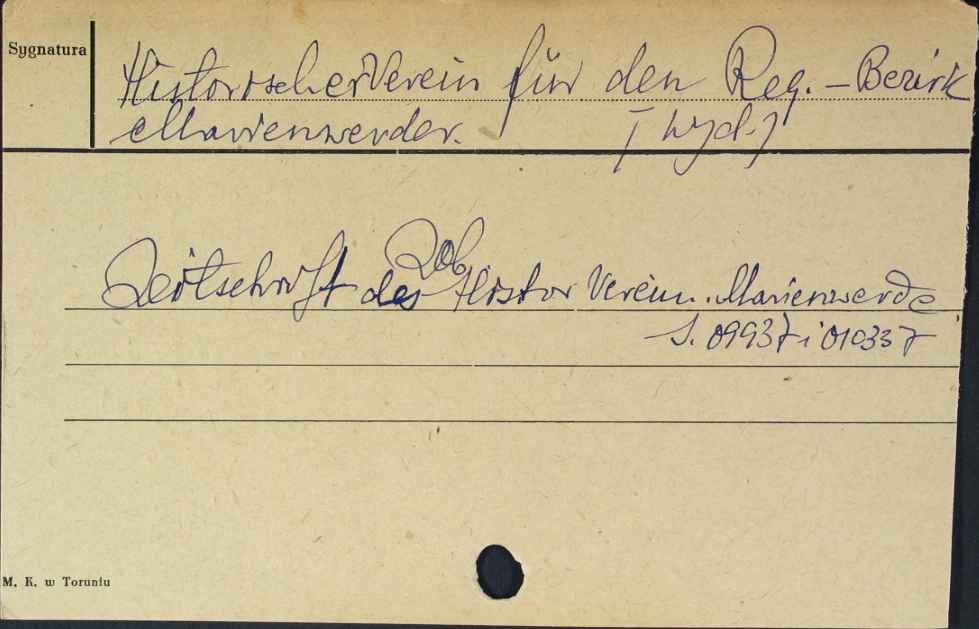 Sygnatura
Historischer Verein für den Reg.-Bezirk
Marienwerder. [wyd.]
Zob.
Zeitschrift des Histor Verein. Marienwerde
S. 09937 i 010337
M. K. w Toruniu